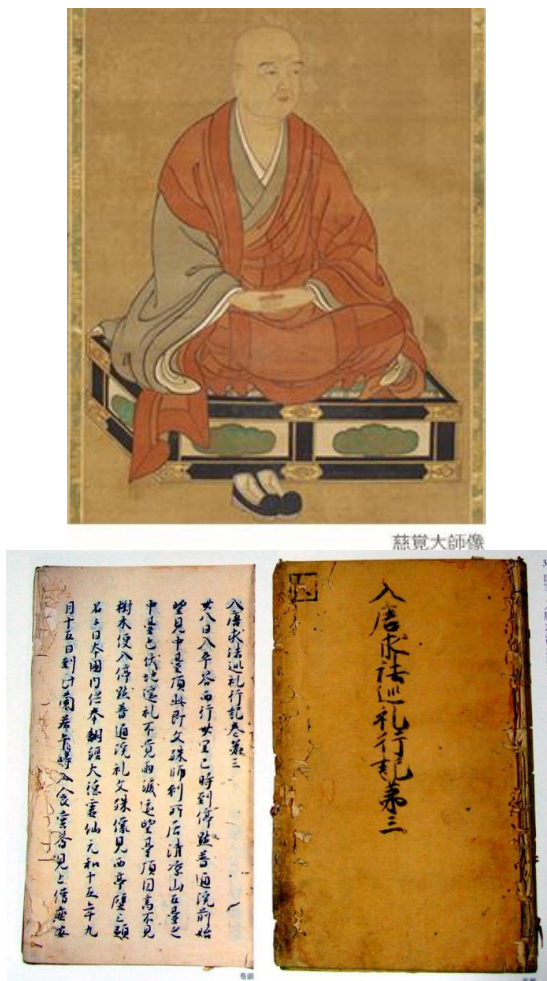 慈覚大師像
入唐求法巡礼行記第三
入唐求法巡礼行記卷第三
廿八日入平谷西行卅里巳時到停點普通院前始
望見中臺頂此即文殊師利所居清凉山五臺之
中臺也伏地遙礼不覺雨淚遙望臺頂圓高不見
樹木便入停點普通院礼文殊像見西亭壁上題
名云日本國内供奉翻經大德霊仙元和十五年九
月十五日到此蘭若 入食堂 見上僧座安
巻頭